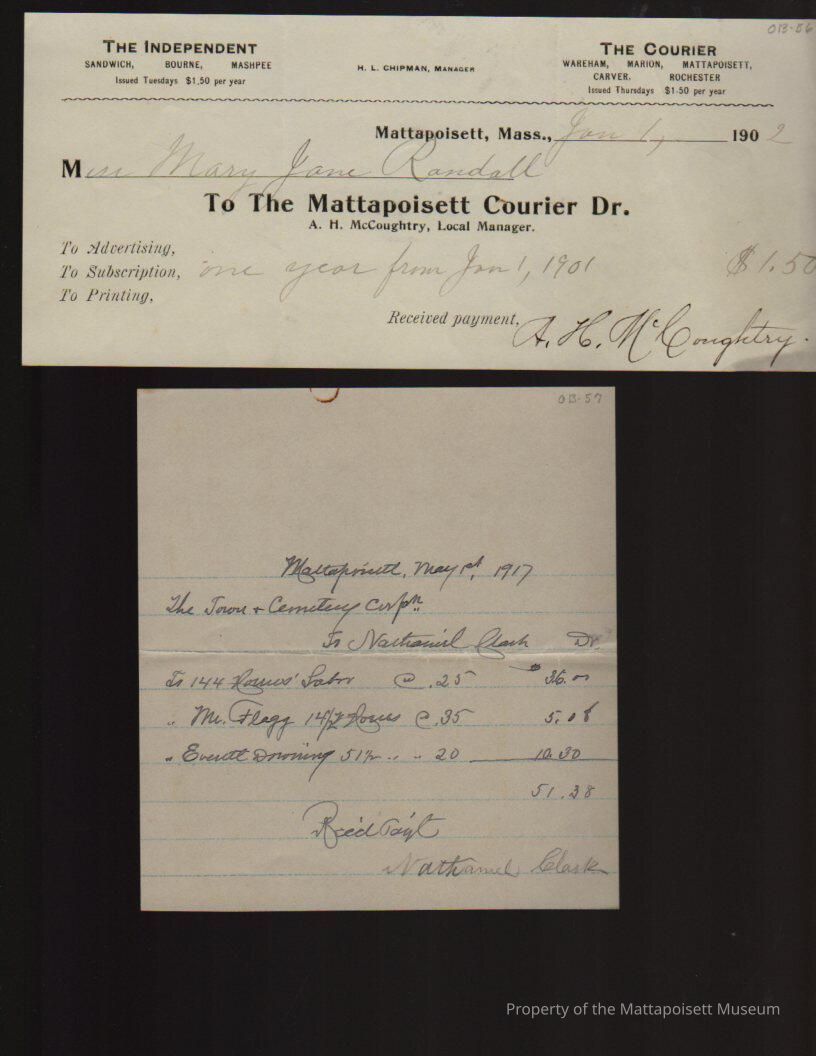 OB-56
THE INDEPENDENT
SANDWICH, BOURNE, MASHPEE
Issued Tuesdays $1.50 per year
H. L. CHIPMAN, MANAGER
THE COURIER
WAREHAM, MARION, MATTAPOISETT,
CARVER, ROCHESTER
Issued Thursdays $1.50 per year
Mattapoisett, Mass., Jan 1, 1902
Miss Mary Jane Randall
To The Mattapoisett Courier Dr.
A. H. McCoughtry, Local Manager.
To Advertising,
To Subscription, one year from Jan 1, 1901 $1.50
To Printing,
Received payment, A. H. McCoughtry.
OB-57
Mattapoisett, May 1st, 1917
The Town + Cemetery Corpn
To Nathaniel Clark Dr.
To 144 Hours' Labor @ .25 $36.00
" Mr. Flagg 14½ Hours @ .35 5.08
" Everett Downing 51½ " " 20 10.30
51.38
Rec'd Pay't
Nathaniel Clark
Property of the Mattapoisett Museum